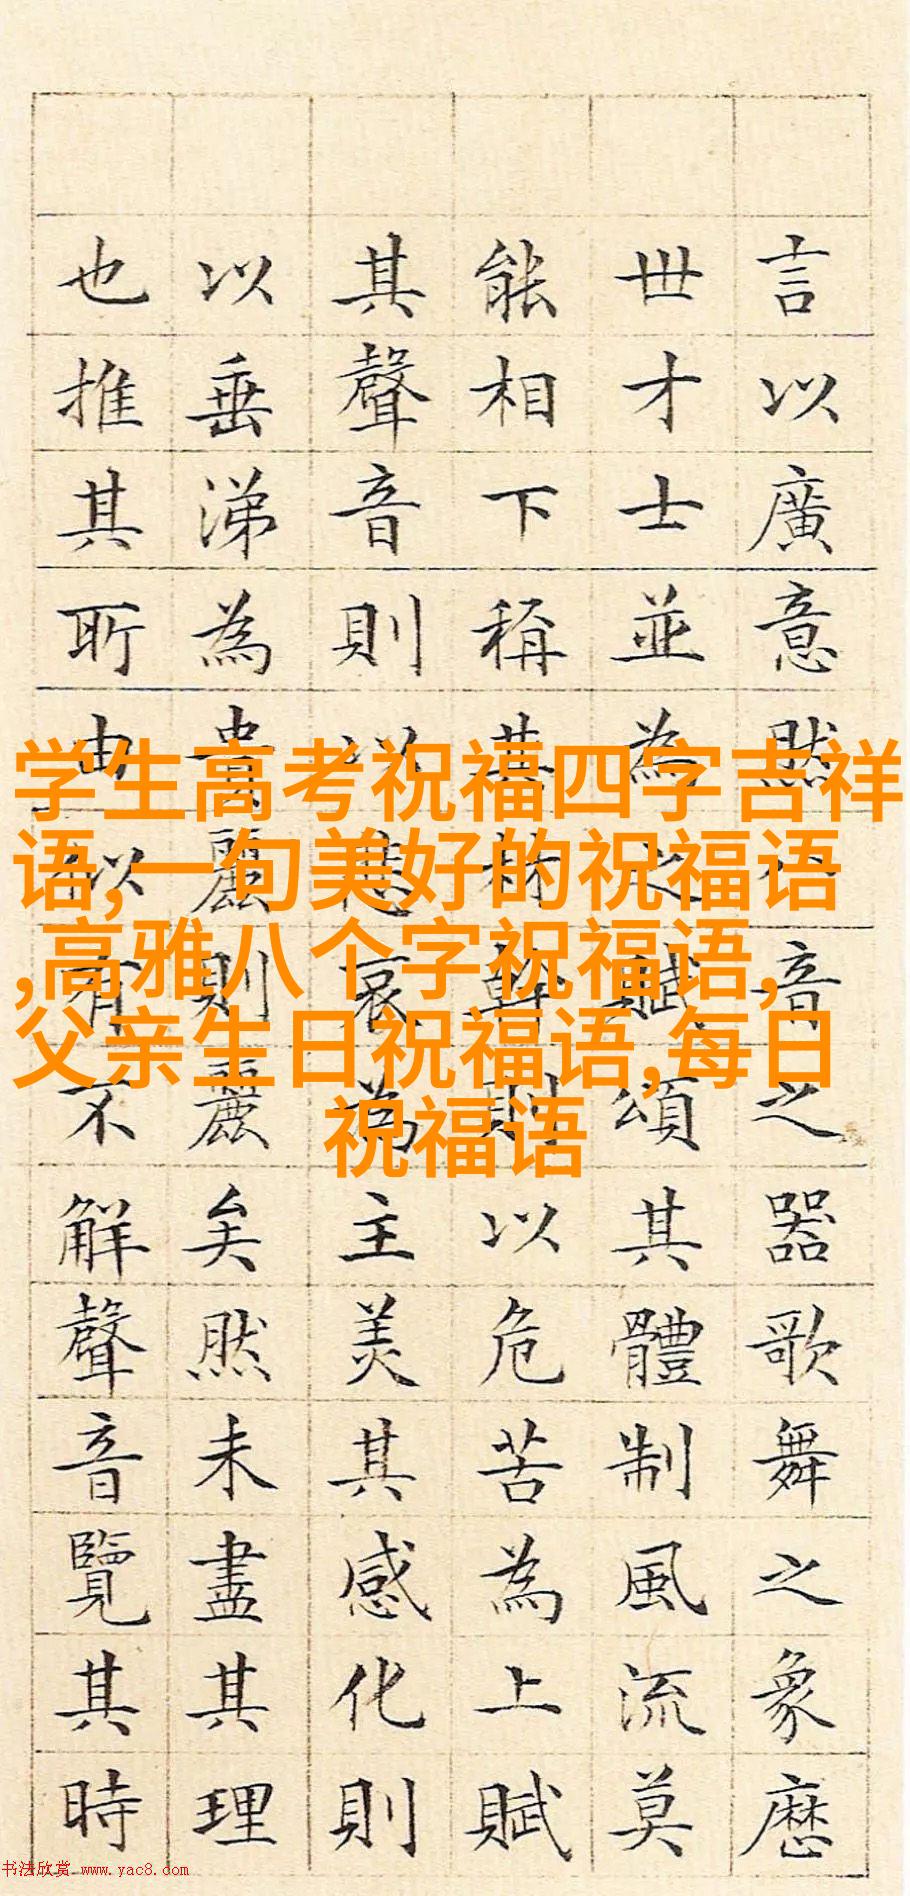 言以廣意然八音之器歌舞之象歷
世才士並為之賦頌其體制風流莫
能相下稱其材幹則以危苦為上賦
其聲音則以悲哀為主美其感化則
以垂涕為貴麗則麗矣然未盡其理
也推其所由似有不解聲音覽其時
学生高考祝福四字吉祥
语,一句美好的祝福语
,高雅八个字祝福语,
父亲生日祝福语,每日
祝福语
书法欣赏 www.yac8.com